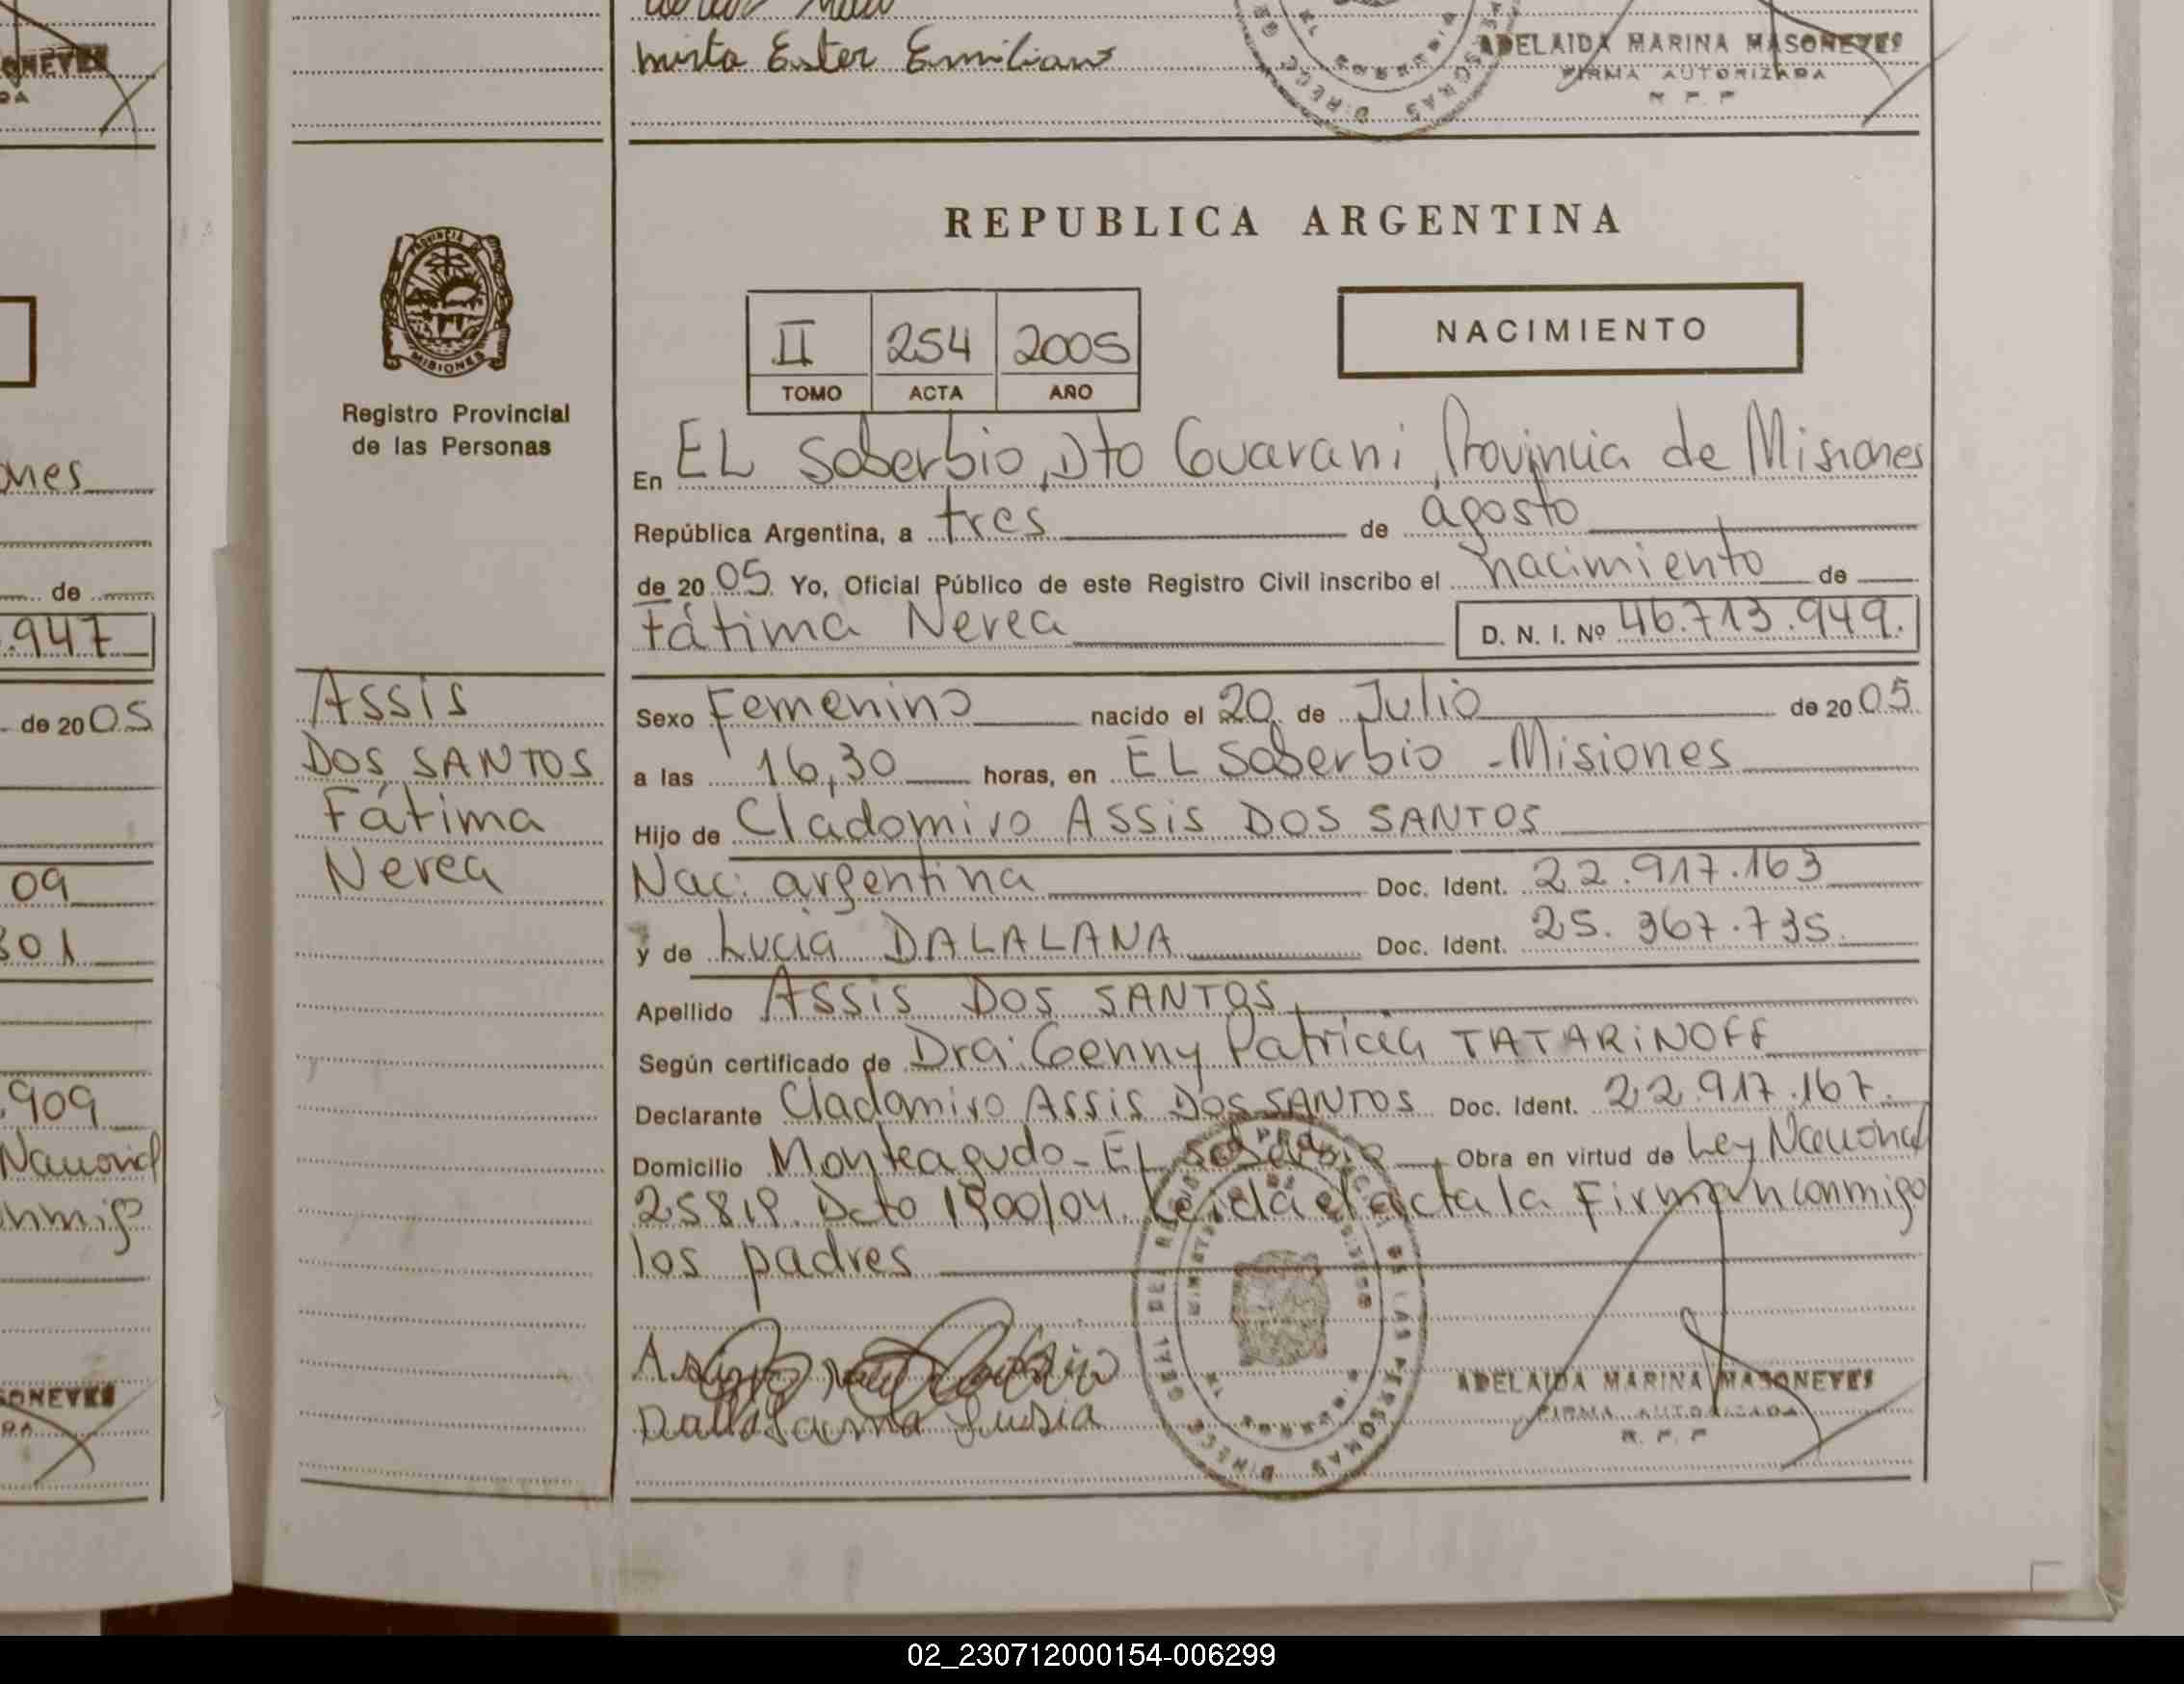 Mirta Ester Emiliano
ADELAIDA MARINA MASONEVES
FIRMA AUTORIZADA
R. P. P
ONEVES
DA
REPUBLICA ARGENTINA
PROVINCIA DE
MISIONES
Registro Provincial
de las Personas
II 254 2005
TOMO ACTA AÑO
NACIMIENTO
En EL Soberbio, Dto Guarani, Provincia de Misiones
República Argentina, a tres de agosto
de 2005 Yo, Oficial Público de este Registro Civil inscribo el nacimiento de
Fátima Nerea D. N. I. Nº 46.713.949.
Assis
DOS SANTOS
Fátima
Nerea
Sexo Femenino nacido el 20 de Julio de 2005
a las 16,30 horas, en EL Soberbio - Misiones
Hijo de Cladomiro Assis DOS SANTOS
Nac. argentina Doc. Ident. 22.917.163
y de Lucia DALALANA Doc. Ident. 25.367.735
Apellido Assis DOS SANTOS
Según certificado de Dra. Genny Patricia TATARINOFF
Declarante Cladomiro Assis DOS SANTOS Doc. Ident. 22.917.167.
Domicilio Monteagudo - EL Soberbio Obra en virtud de Ley Nacional
25819. Dcto 1900/04. Leida el acta la Firman conmigo
los padres
ADELAIDA MARINA MASONEVES
FIRMA AUTORIZADA
R. P. P
nes
de
.947
de 2005
09
301
.909
Nacional
nmigo
SONEVES
DA
02_230712000154-006299